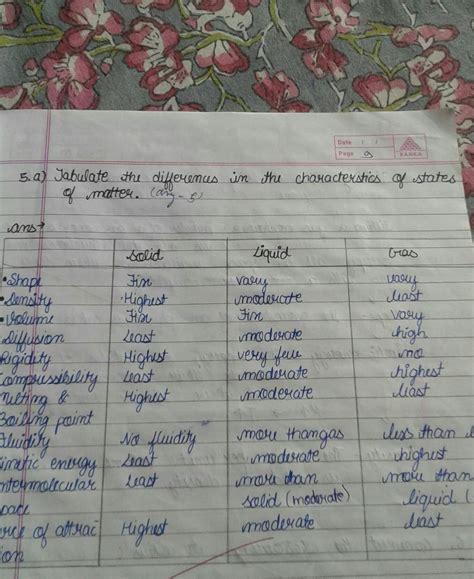 Date / /
Page 9
KANHA
5.a) Tabulate the differences in the characterstics of states
of matter. (any-5)
ans→
Solid Liquid Gas
•Shape Fix vary vary
•Density •Highest moderate least
•Volume Fix Fix vary
Diffusion Least moderate high
Rigidity Highest very few no
Compressibility Least moderate highest
Melting & Highest moderate least
Boiling point
Fluidity No fluidity more than gas less than l
inetic energy Least moderate highest
ntermolecular Least more than more than
pace solid (moderate) liquid (
orce of attrac Highest moderate least
ion